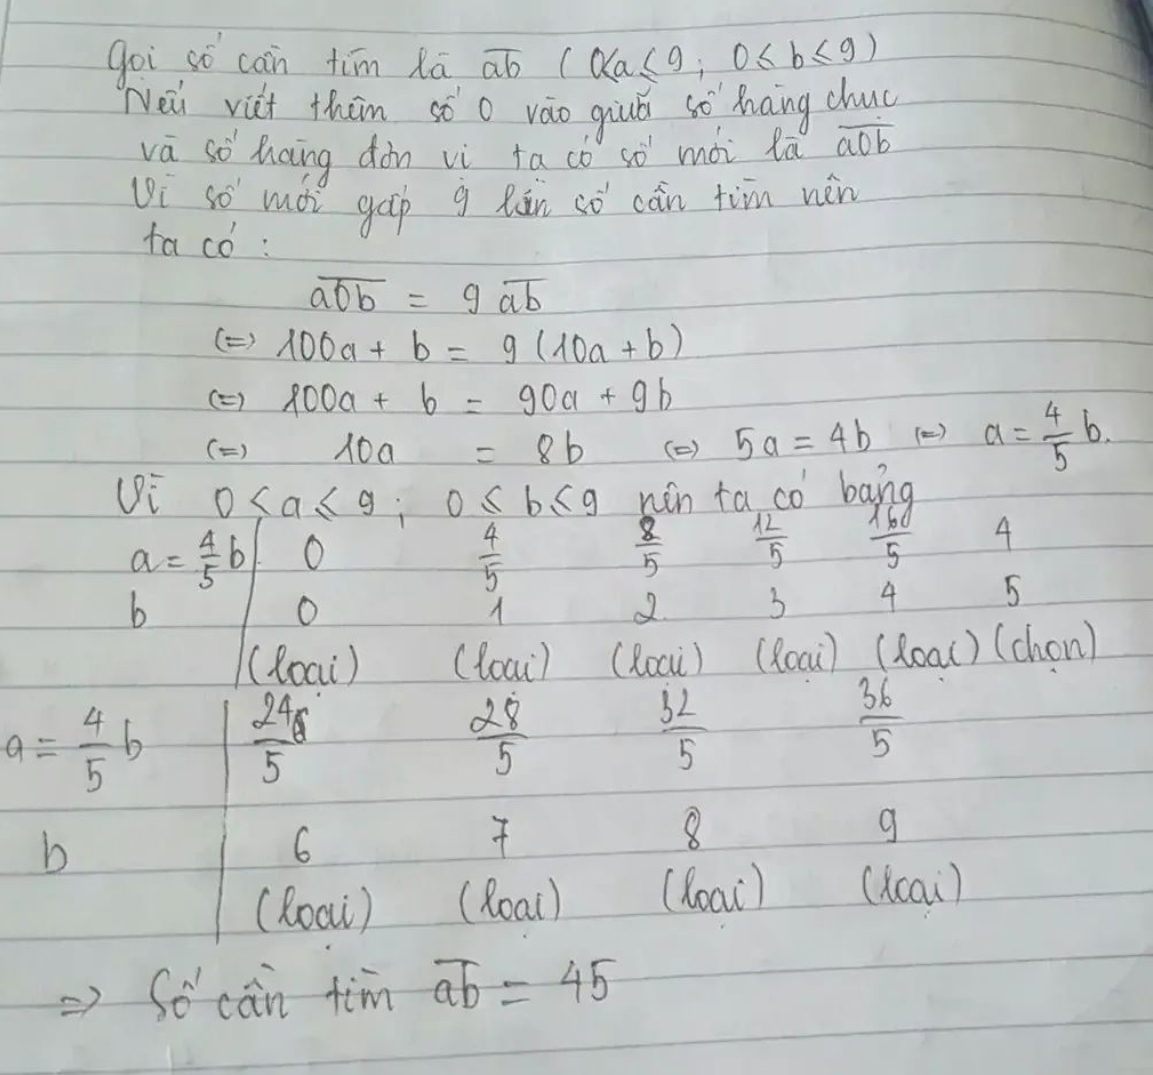 Gọi số cần tìm là a̅b̅ (0<a≤9; 0≤b≤9)
Nếu viết thêm số 0 vào giữa số hàng chục
và số hàng đơn vị ta có số mới là a̅0̅b̅
Vì số mới gấp 9 lần số cần tìm nên
ta có :
a̅0̅b̅ = 9 a̅b̅
(=) 100a + b = 9 (10a + b)
(=) 100a + b = 90a + 9b
(=) 10a = 8b (=) 5a = 4b (=) a = 4/5 b.
Vì 0 < a ≤ 9 ; 0 ≤ b ≤ 9 nên ta có bảng
a = 4/5 b | 0 4/5 8/5 12/5 16/5 4
b | 0 1 2 3 4 5
(loại) (loại) (loại) (loại) (loại) (chọn)
a = 4/5 b | 24/5 28/5 32/5 36/5
b | 6 7 8 9
(loại) (loại) (loại) (loại)
=> Số cần tìm a̅b̅ = 45